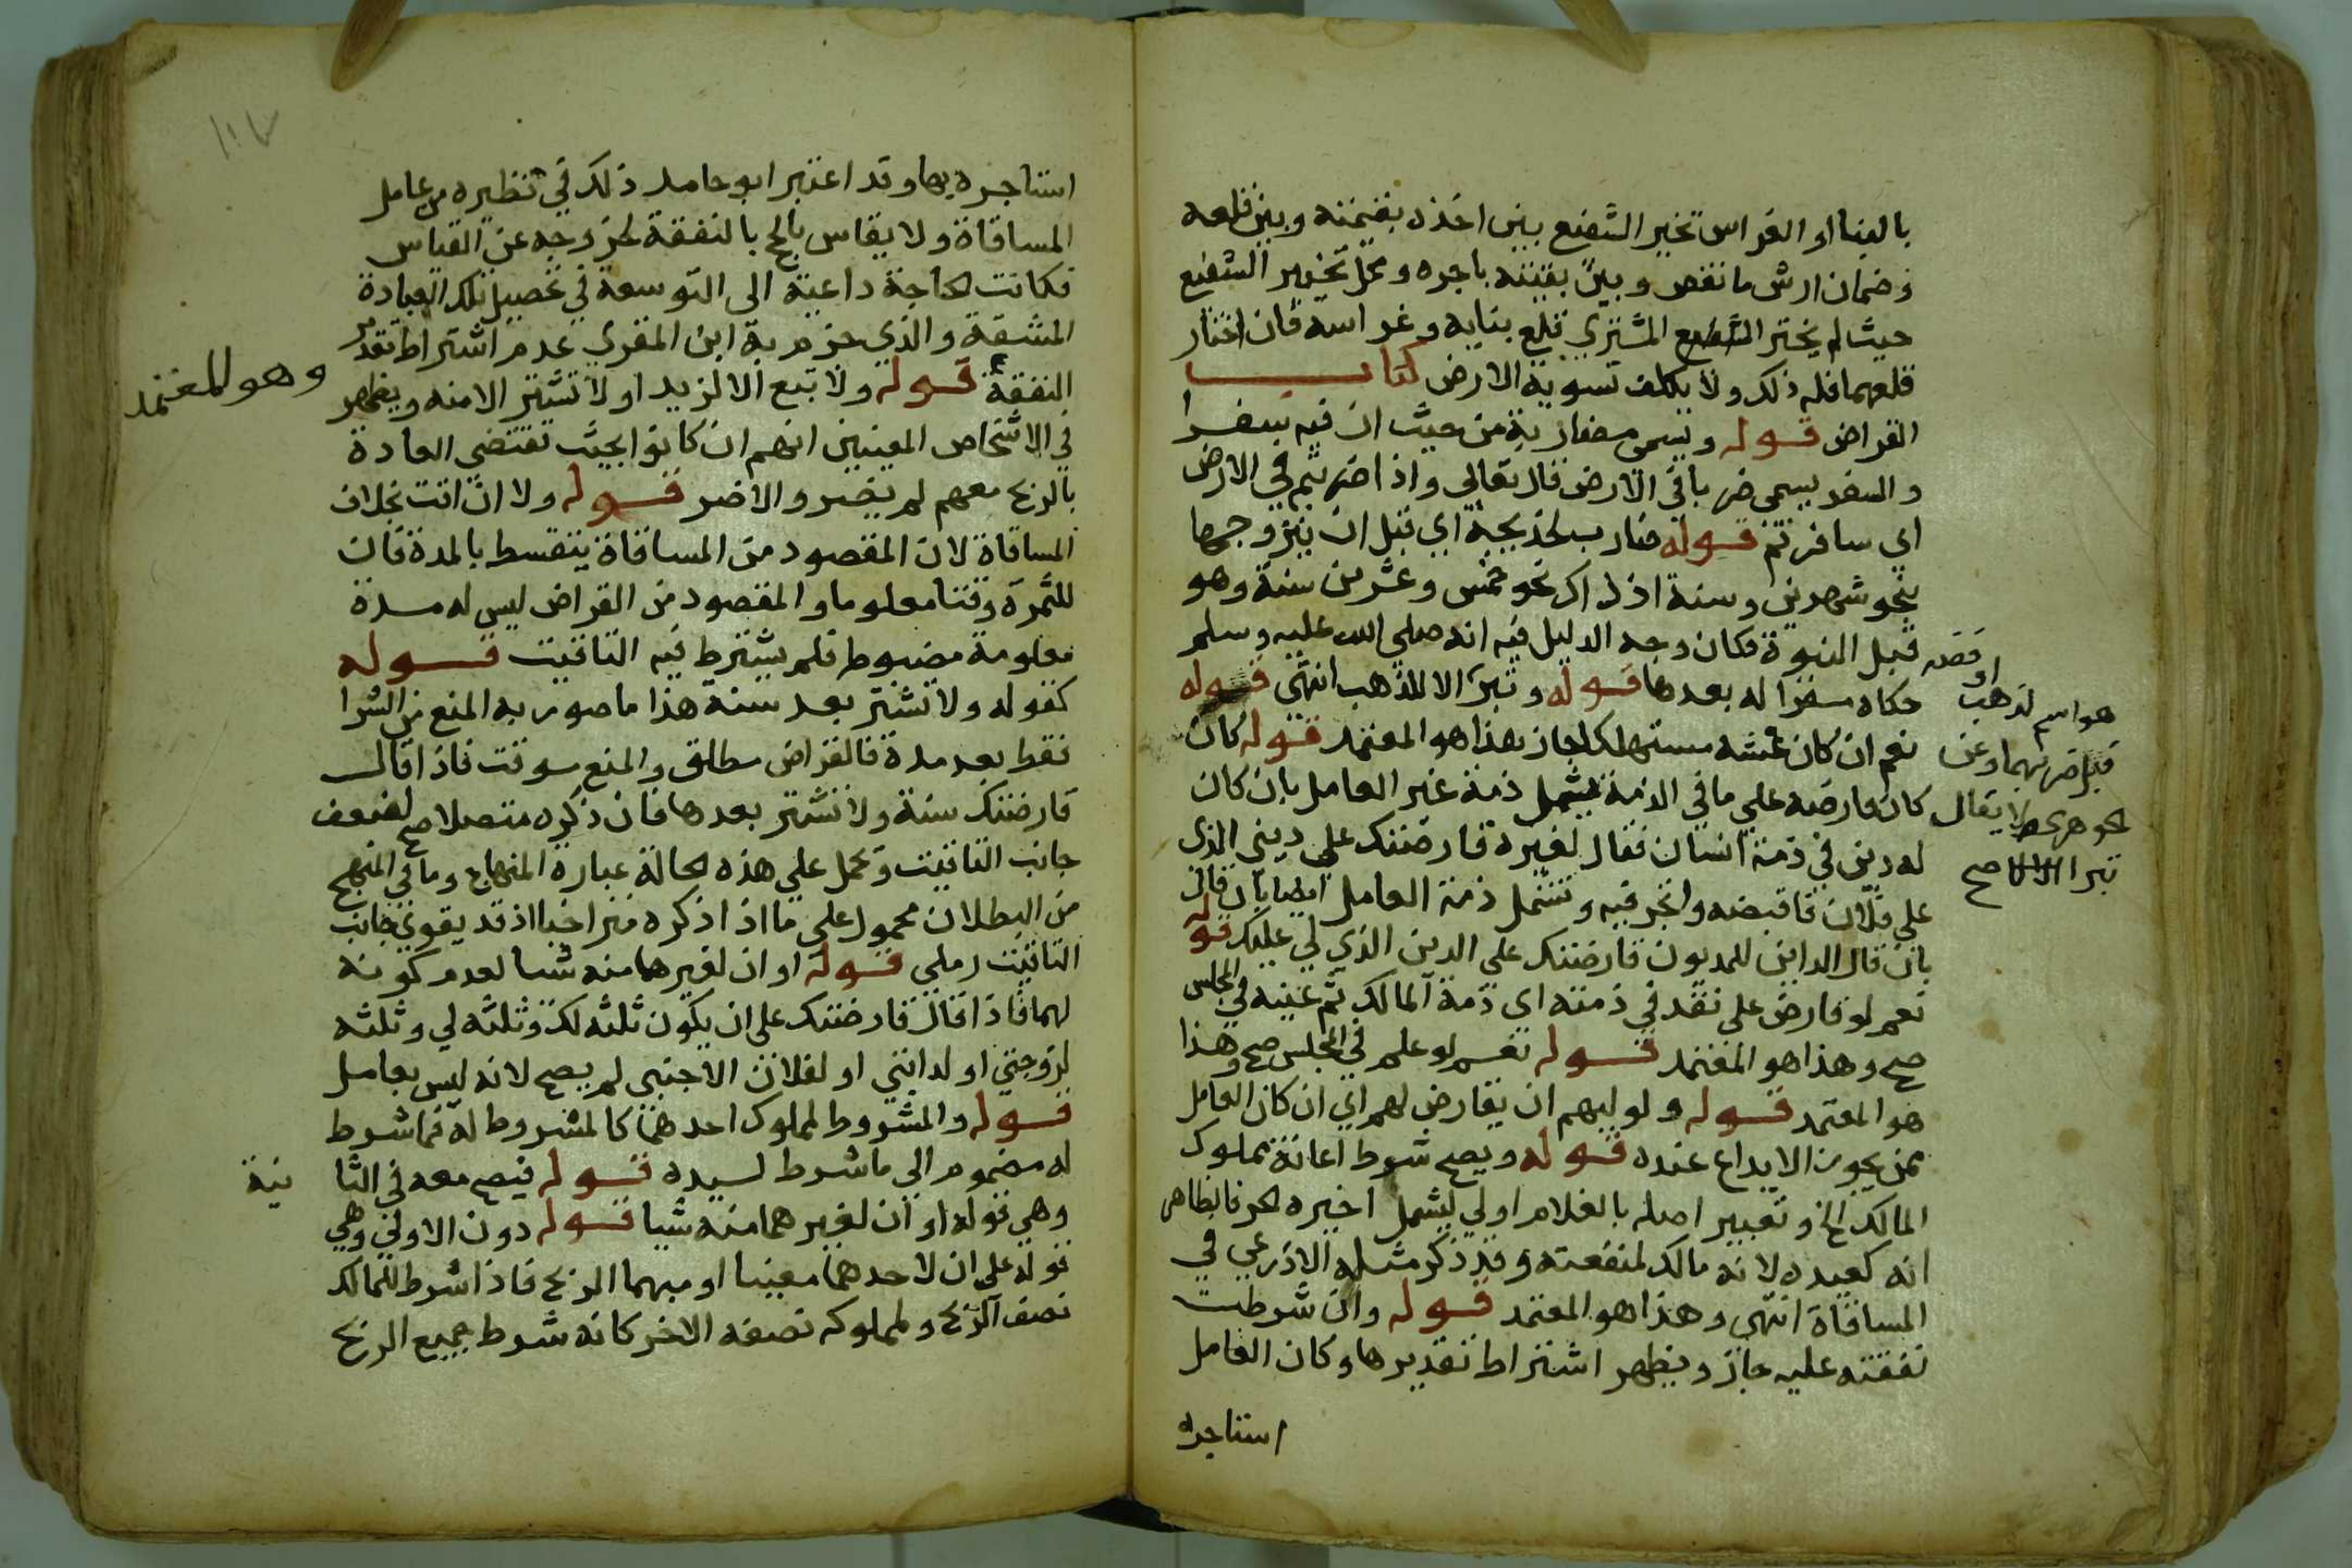 بالبنا او الغراس تخير الشفيع بين اخذه بقيمته وبين قلعه
وضمان ارش ما نقص وبين بقيته باجره ومحل تخيير الشفيع
حيث لم يختر الشفيع المشتري قلع بنايه وغراسه فان اختار
قلعهما فله ذلك ولا يكلف تسوية الارض كتاب
القراض قوله ويسمى مضاربة من حيث ان فيه سفرا
والسفر يسمى ضربا في الارض قال تعالى واذا ضربتم في الارض
اي سافرتم قوله ضارب لخديجة اي قبل ان يتزوجها
بنحو شهرين وسنة اذ ذاك نحو خمس وعشرين سنة وهو
قبل النبوة فكان وجه الدليل فيه انه صلى الله عليه وسلم
حكاه مقررا له بعدها قوله وتبر الا للذهب انتهى قوله
نعم ان كان غشه مستهلكا جاز هذا هو المعتمد قوله كان
كان قارضه على ما في الذمة يشمل ذمة غير العامل بان كان
له دين في ذمة انسان فقال لغيره قارضتك على ديني الذي
على فلان فاقبضه واتجر فيه وتشمل ذمة العامل ايضا بان قال
بان قال الداين للمديون قارضتك على الدين الذي لي عليك قوله
نعم لو قارض على نقد في ذمته اى ذمة المالك ثم عينه في المجلس
صح وهذا هو المعتمد قوله نعم لو علم في المجلس صح وهذا
هو المعتمد قوله ولوليهم ان يقارض لهم اي ان كان العامل
ممن يجوز الايداع عنده قوله ويصح شرط اعانة مملوك
المالك الخ وتعبير اصله بالغلام اولي ليشمل اخيره الحر فالظاهر
انه كعبده لانه مالك لمنفعته وقد ذكر مثله الاذرعي في
المساقاة انتهى وهذا هو المعتمد قوله وان شرطت
نفقته عليه جاز ويظهر اشتراط تقديرها وكان العامل
استاجره
او فضه
هو اسم لذهب
قبل ضربهما وعن
لا يقال
تبر الا صح
استاجره بها وقد اعتبر ابو حامد ذلك في نظيره من عامل
المساقاة ولا يقاس بالحج بالنفقة لخروجه عن القياس
فكانت الحاجة داعية الى التوسعة في تحصيل تلك العبادة
المشقة والذي جزم به ابن المقري عدم اشتراط تقدير
النفقة قوله ولا تبع الا لزيد او لا تشتر الا منه ويظهر
وهو المعتمد
في الاشخاص المعينين انهم ان كانوا بحيث تقتضي العادة
بالربح معهم لم يضر والا ضر قوله ولا ان اقت بخلاف
المساقاة لان المقصود من المساقاة ينقسط بالمدة فان
للثمرة وقتا معلوما والمقصود من القراض ليس له مدة
معلومة مضبوط فلم يشترط فيه التاقيت قوله
كقوله ولا تشتر بعد سنة هذا ما صور به المنع من الشرا
فقط بعد مدة فالقراض مطلق والمنع موقت فاذا قال
قارضتك سنة ولا تشتر بعدها فان ذكره متصلا صح لضعف
جانب التاقيت وتحمل على هذه الحالة عبارة المنهاج وما في المنهج
من البطلان محمول على ما اذا ذكره متراخيا اذ قد يقوي جانب
التاقيت رملي قوله او ان لغيرهما منه شيا لعدم كونه
لهما فاذا قال قارضتك على ان يكون ثلثه لك وثلثه لي وثلثه
لزوجتي او لدابتي او لفلان الاجنبي لم يصح لانه ليس بعامل
قوله والمشروط لمملوك احدهما كالمشروط له فما شرط
له مضموم الى ما شرط لسيده قوله فيصح معه في الثا نية
وهي قوله او ان لغيرهما منه شيا قوله دون الاولى وهي
قوله على ان لاحدهما معينا او مبهما الربح فاذا شرط للمالك
نصف الربح ولمملوكه نصفه الاخر كانه شرط جميع الربح